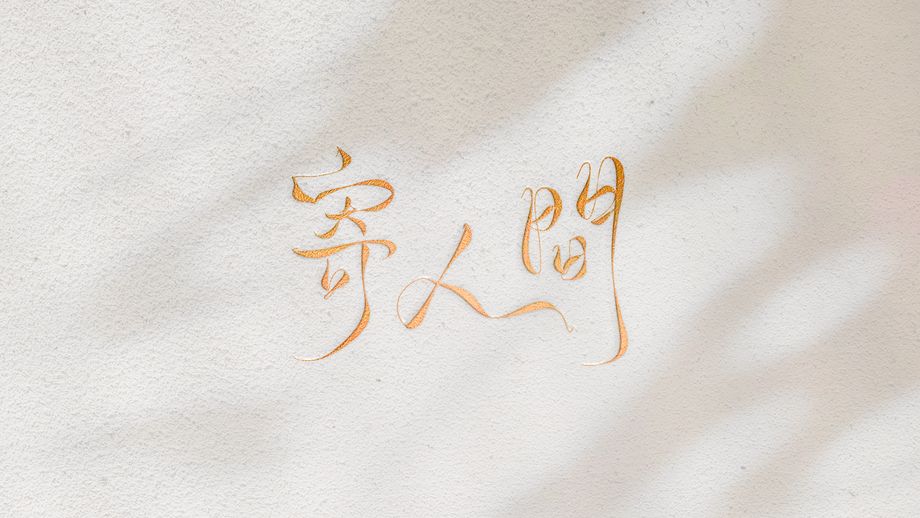 寄人間